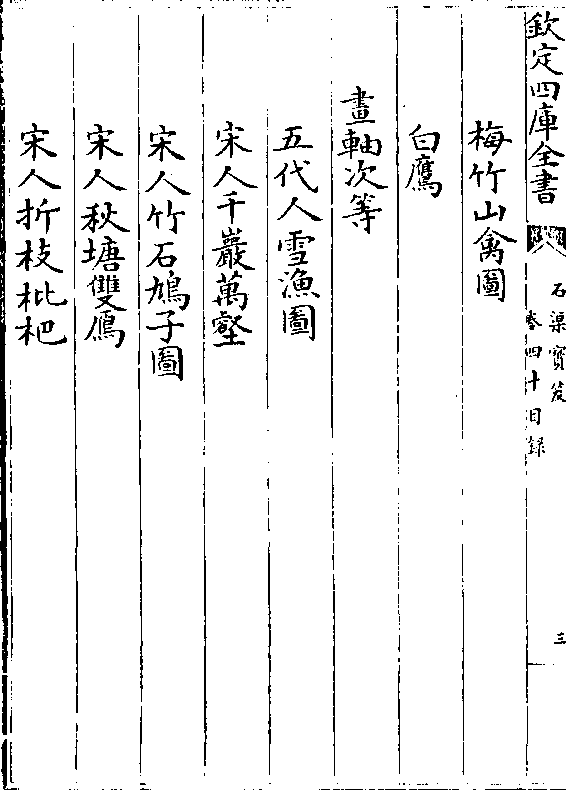 欽定四庫全書
石渠寳笈
卷四十目録
三
梅竹山禽圖
白鷹
畫軸次等
五代人雪漁圖
宋人千巖萬壑
宋人竹石鳩子圖
宋人秋塘雙鴈
宋人折枝枇杷